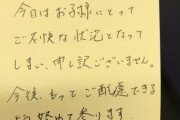 今日はお子様にとって
ご不快な状況となって
しまい、申し訳ございません。
今後、もっとご配慮できる
よう努めて参ります